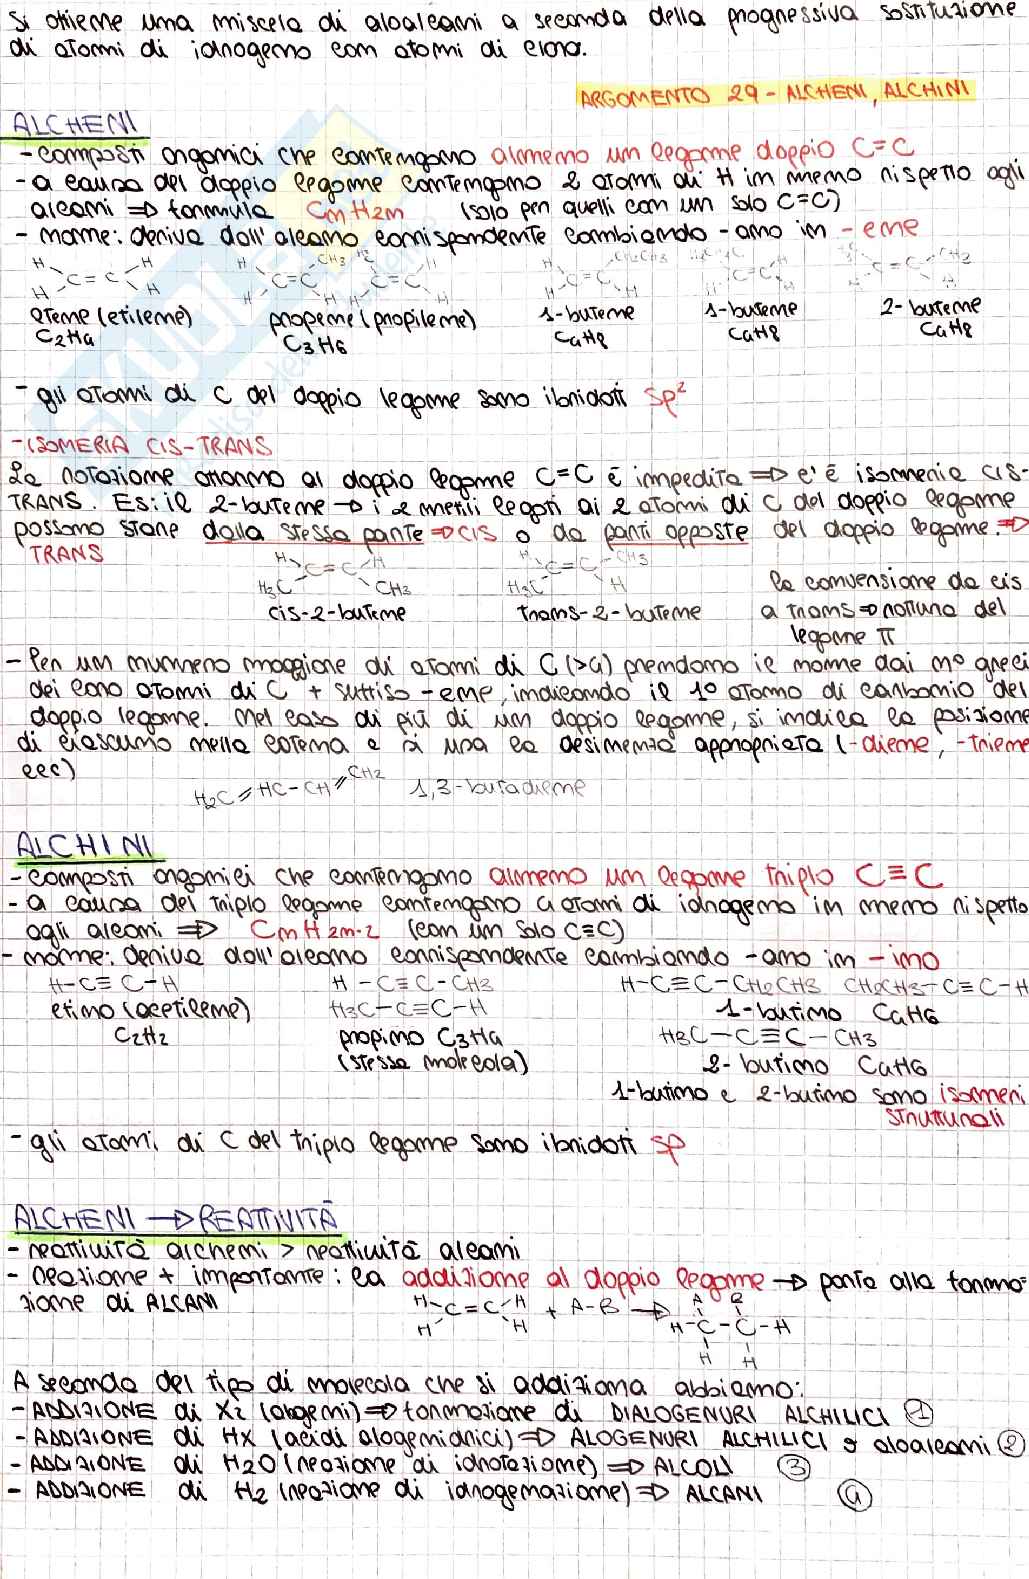 Si ottiene una miscela di aloalcani a seconda della progressiva sostituzione
di atomi di idrogeno con atomi di cloro.
ARGOMENTO 29 - ALCHENI, ALCHINI
ALCHENI
- composti organici che contengono almeno un legame doppio C=C
- a causa del doppio legame contengono 2 atomi di H in meno rispetto agli
alcani ⇒ formula CnH2n (solo per quelli con un solo C=C)
- nome: deriva dall'alcano corrispondente cambiando -ano in -ene
H H H CH3 H3C H H CH2CH3 H
C=C C=C C=C C=C C=C C=C CH3
H H H H H H H H H
etene (etilene) propene (propilene) 1-butene 1-butene 2-butene
C2H4 C3H6 C4H8 C4H8 C4H8
- gli atomi di C del doppio legame sono ibridati sp²
- ISOMERIA CIS-TRANS
La rotazione attorno al doppio legame C=C è impedita ⇒ c'è isomeria CIS-
TRANS. Es: il 2-butene → i 2 metili legati ai 2 atomi di C del doppio legame
possono stare dalla stessa parte ⇒ CIS o da parti opposte del doppio legame. ⇒
TRANS
H H H CH3
C=C C=C
H3C CH3 H3C H
la conversione da cis
cis-2-butene trans-2-butene a trans ⇒ rottura del
legame π
- Per un numero maggiore di atomi di C (>4) prendono il nome dai n° greci
dei loro atomi di C + suffiso -ene, indicando il 1° atomo di carbonio del
doppio legame. Nel caso di più di un doppio legame, si indica la posizione
di ciascuno nella catena e si usa la desimenza appropriata (-diene, -triene
ecc)
H2C=HC-CH=CH2 1,3-butadiene
ALCHINI
- composti organici che contengono almeno un legame triplo C≡C
- a causa del triplo legame contengono 4 atomi di idrogeno in meno rispetto
agli alcani ⇒ CnH2n-2 (con un solo C≡C)
- nome: deriva dall'alcano corrispondente cambiando -ano in -ino
H-C≡C-H H-C≡C-CH3 H-C≡C-CH2CH3 CH2CH3-C≡C-H
etino (acetilene) H3C-C≡C-H 1-butino C4H6
C2H2 propino C3H4 H3C-C≡C-CH3
(stessa molecola) 2-butino C4H6
1-butino e 2-butino sono isomeri
strutturali
- gli atomi di C del triplo legame sono ibridati sp
ALCHENI → REATTIVITÀ
- reattività alcheni > reattività alcani
- reazione + importante: la addizione al doppio legame → porta alla forma-
zione di ALCANI
H H A B
C=C + A-B → H-C-C-H
H H H H
A seconda del tipo di molecola che si addiziona abbiamo:
- ADDIZIONE di X2 (alogeni) ⇒ formazione di DIALOGENURI ALCHILICI ①
- ADDIZIONE di HX (acidi alogenidrici) ⇒ ALOGENURI ALCHILICI o aloalcani ②
- ADDIZIONE di H2O (reazione di idratazione) ⇒ ALCOLI ③
- ADDIZIONE di H2 (reazione di idrogenazione) ⇒ ALCANI ④